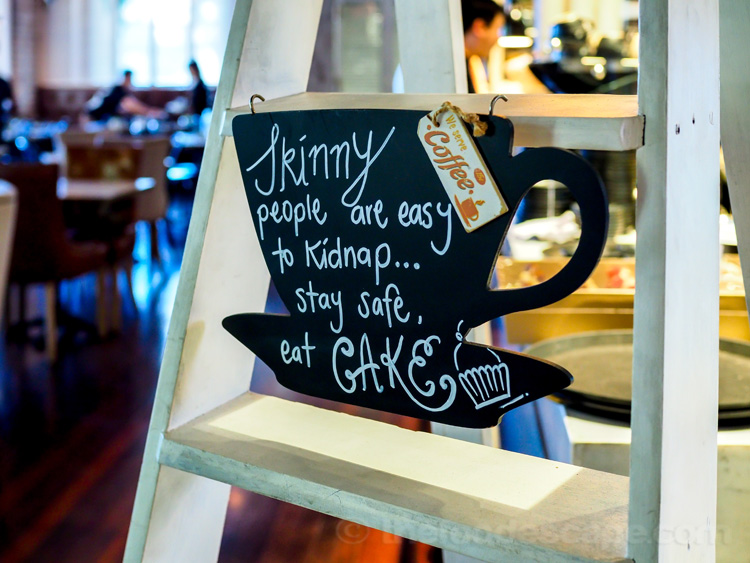 We serve
Coffee
Skinny
people are easy
to Kidnap...
stay safe,
eat CAKE
© thefoodescape.com